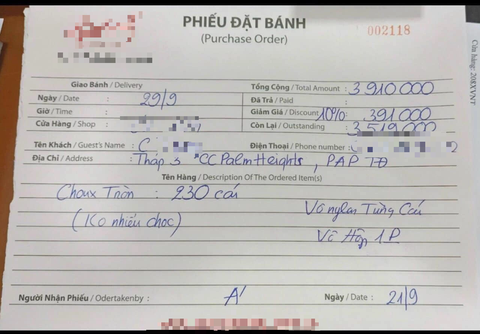 PHIẾU ĐẶT BÁNH
(Purchase Order)
002118
Cửa hàng: 208XVNT
Giao Bánh / Delivery
Tổng Cộng / Total Amount : 3 910 000
Ngày / Date : 29/9
Đã Trả / Paid :
Giờ / Time :
Giảm Giá / Discount 10% : 391 000
Cửa Hàng / Shop :
Còn Lại / Outstanding : 3 519 000
Tên Khách / Guest's Name : C
Điện Thoại / Phone number :
Địa Chỉ / Address : Tháp 3 CC Palm Heights, PAP TĐ
Tên Hàng / Description Of The Ordered Item(s)
Choux Tròn : 230 cái
Vô nylon Từng Cái
(Ko nhiều choc)
Vô Hộp 1 P.
Người Nhận Phiếu / Odertakenby : A'
Ngày / Date : 21/9